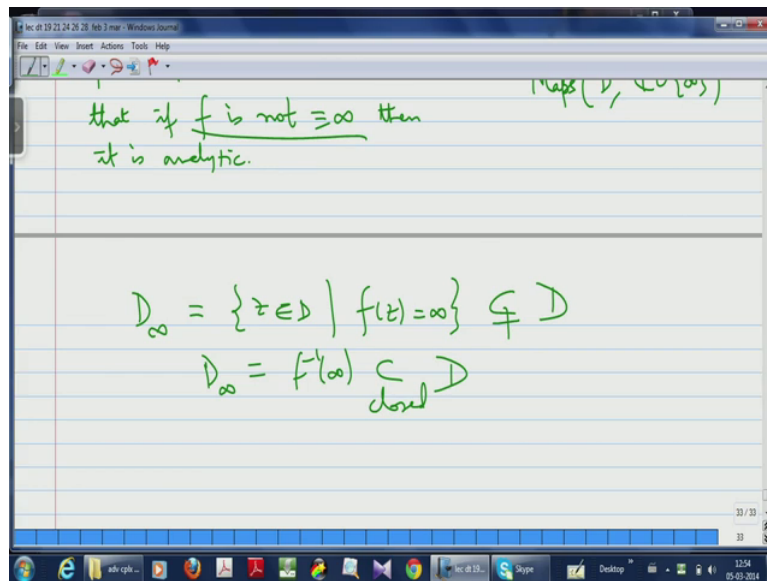 lec dt 19 21 24 26 28 feb 3 mar - Windows Journal
File Edit View Insert Actions Tools Help
Maps(D, ℂ∪{∞})
that if f is not ≡ ∞ then
it is analytic.
D_∞ = {z ∈ D | f(z) = ∞} ⊊ D
D_∞ = f⁻¹(∞) ⊂ D
closed
33 / 33
33
adv cplx ...
lec dt 19...
Skype
Desktop
12:54
05-03-2014